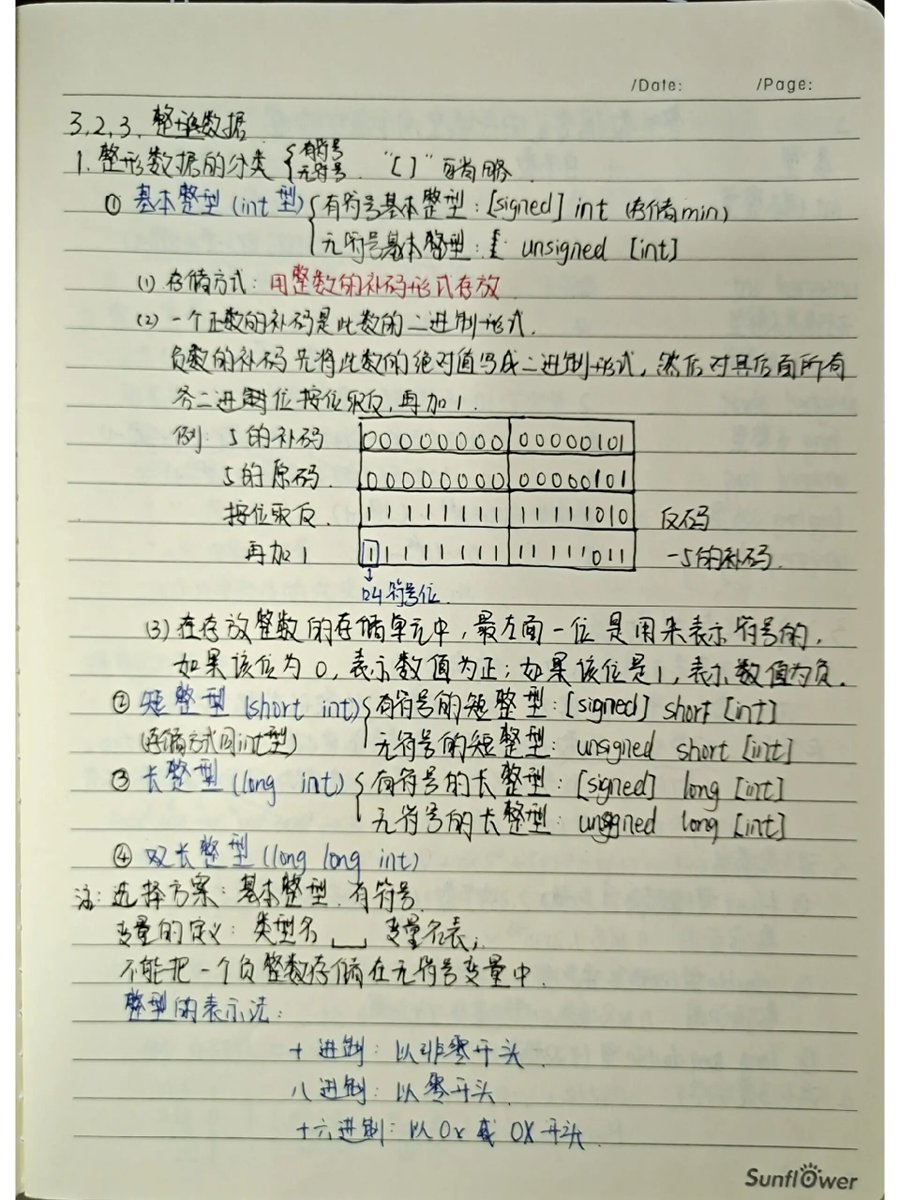 /Date: /Page:
3,2,3、整型数据
1.整形数据的分类{有符号 无符号. "[ ]"可省略.
① 基本整型(int型){有符号基本整型:[signed] int (存储min)
无符号基本整型: unsigned [int]
(1) 存储方式:用整数的补码形式存放
(2) 一个正数的补码是此数的二进制形式.
负数的补码先将此数的绝对值写成二进制形式,然后对其后面所有
各二进制位按位取反,再加1.
例:5的补码 00000000 00000101
5的原码. 00000000 00000101
按位取反. 11111111 11111010 反码
再加1 11111111 11111011 -5的补码.
↓
符号位.
(3) 在存放整数的存储单元中,最左面一位是用来表示符号的,
如果该位为0,表示数值为正;如果该位是1,表示数值为负.
② 短整型 (short int){有符号的短整型:[signed] short [int]
(存储方式同int型) 无符号的短整型:unsigned short [int]
③ 长整型(long int){有符号的长整型:[signed] long [int]
无符号的长整型:unsigned long [int]
④ 双长整型(long long int)
注:选择方案:基本整型、有符号.
变量的定义:类型名 ␣ 变量名表;
不能把一个负整数存储在无符号变量中.
整型的表示法:
十进制:以非零开头
八进制:以零开头.
十六进制:以0x或0X开头.
Sunflower